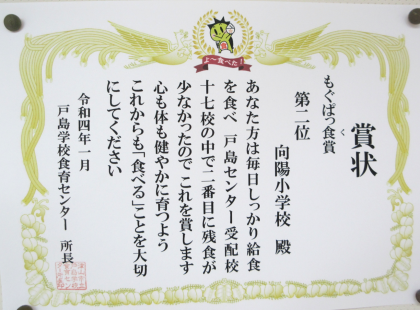 よ～食べた！
賞状
もぐぱっ食賞
く
第二位
向陽小学校 殿
あなた方は毎日しっかり給食
を食べ 戸島センター受配校
十七校の中で二番目に残食が
少なかったので これを賞します
心も体も健やかに育つよう
これからも「食べる」ことを大切
にしてください
令和四年一月
戸島学校食育センター 所長